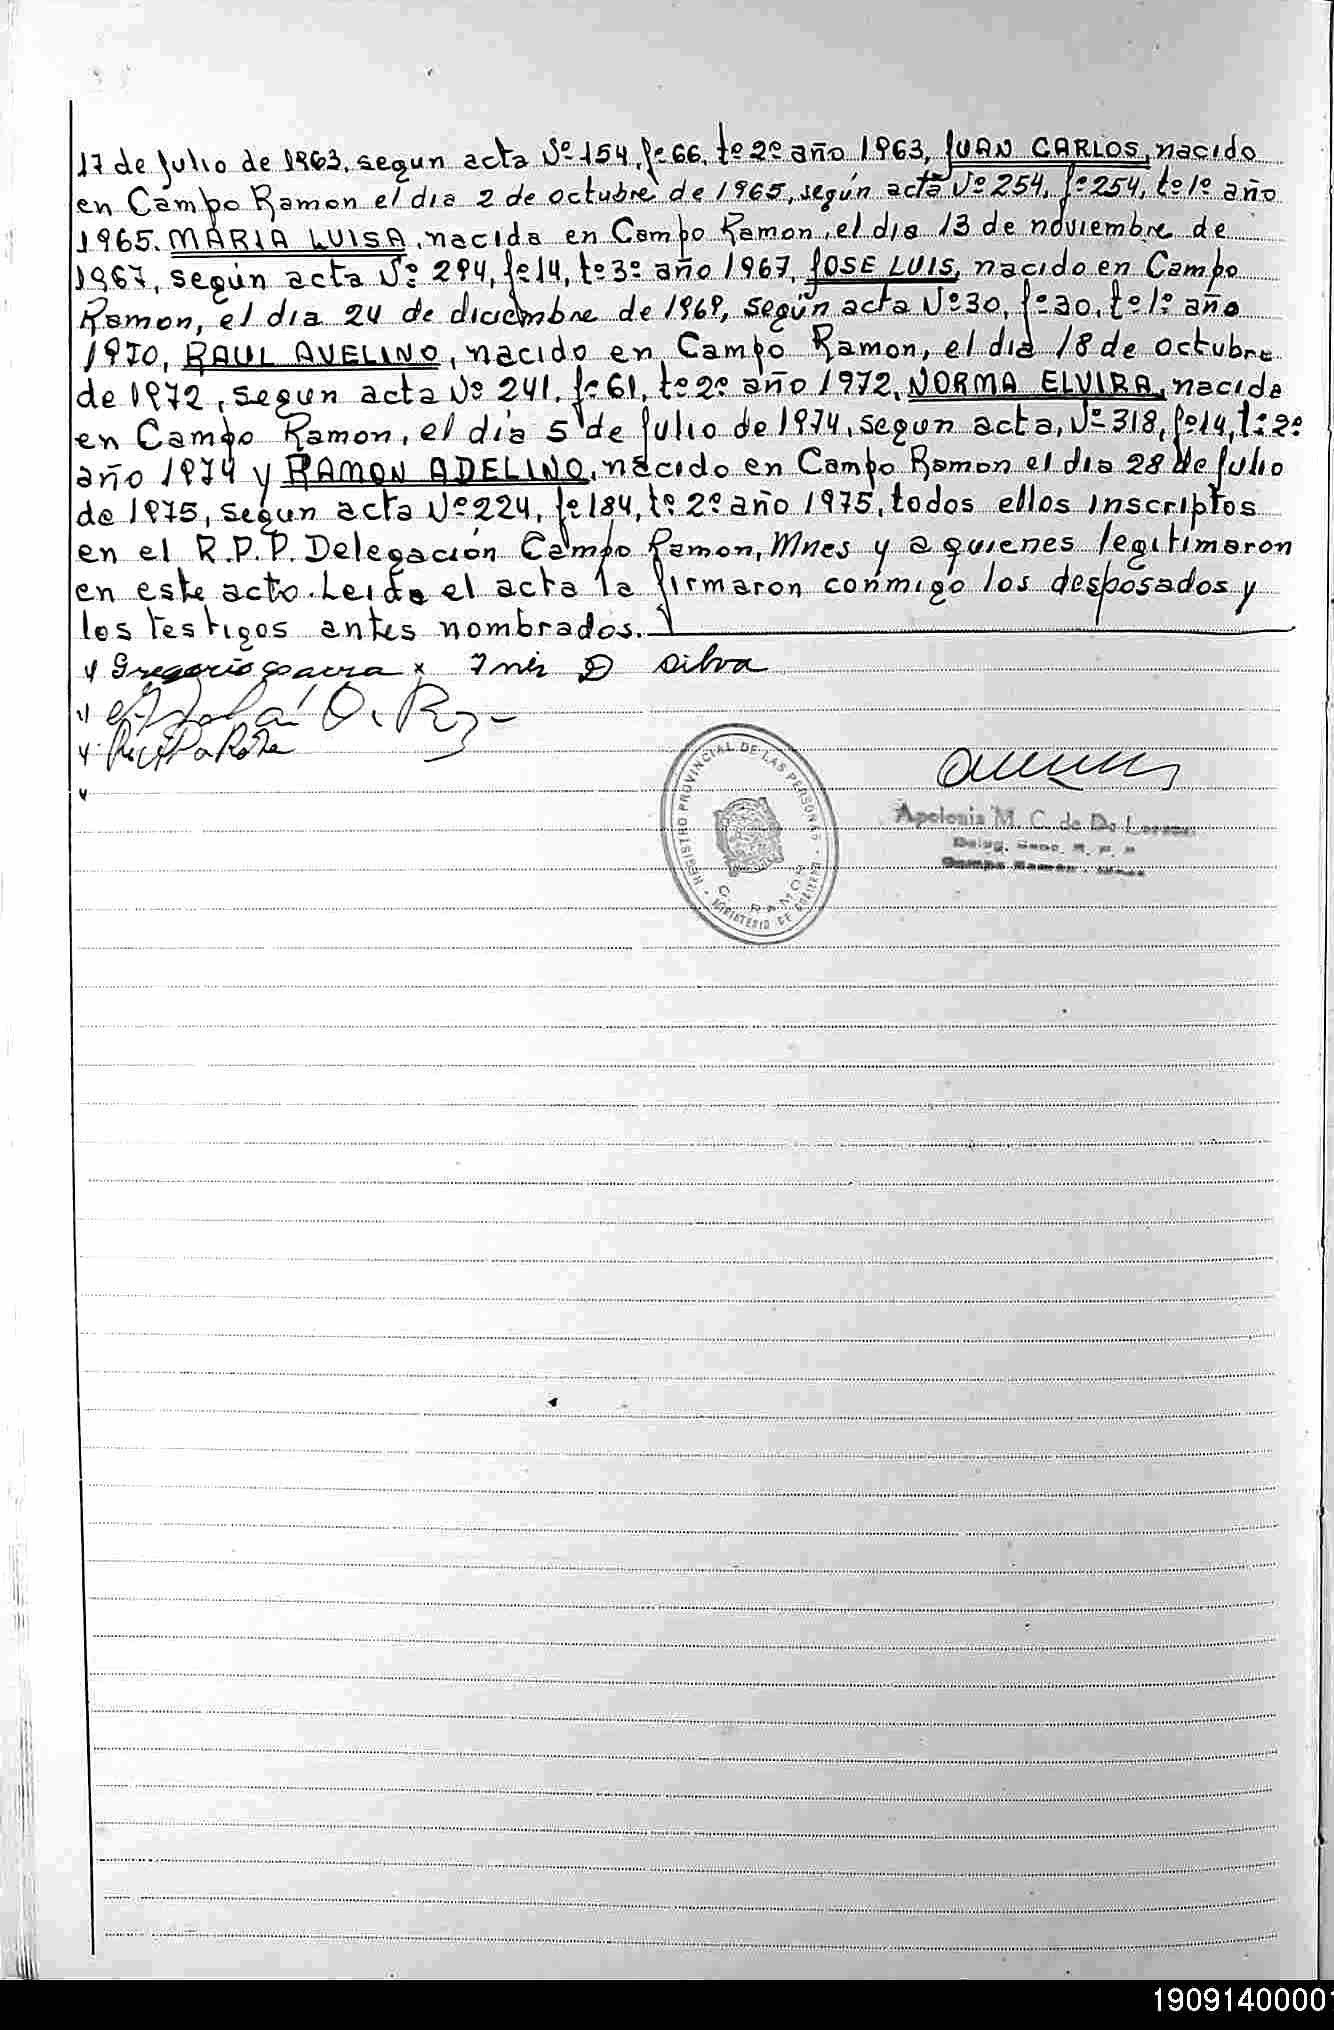 17 de Julio de 1963, segun acta Nº 154, fº 66, tº 2º año 1963, JUAN CARLOS, nacido
en Campo Ramon el dia 2 de octubre de 1965, según acta Nº 254, fº 254, tº 1º año
1965. MARIA LUISA, nacida en Campo Ramon, el dia 13 de noviembre de
1967, según acta Nº 294, fº 14, tº 3º año 1967, JOSE LUIS, nacido en Campo
Ramon, el dia 24 de diciembre de 1969, según acta Nº 30, fº 30, tº 1º año
1970, RAUL AVELINO, nacido en Campo Ramon, el dia 18 de octubre
de 1972, segun acta Nº 241, fº 61, tº 2º año 1972, NORMA ELVIRA, nacida
en Campo Ramon, el dia 5 de Julio de 1974, segun acta, Nº 318, fº 14, tº 2º
año 1974 y RAMON ADELINO, nacido en Campo Ramon el dia 28 de Julio
de 1975, segun acta Nº 224, fº 184, tº 2º año 1975, todos ellos inscriptos
en el R.P.P. Delegación Campo Ramon, Mnes y a quienes legitimaron
en este acto. Leida el acta la firmaron conmigo los desposados y
los testigos antes nombrados.
Gregorio x Ines D silva
REGISTRO PROVINCIAL DE LAS PERSONAS
C. RAMON
MINISTERIO DE GOBIERNO
Apolonia M. C. de De
Campo Ramón - Mnes
1909140000